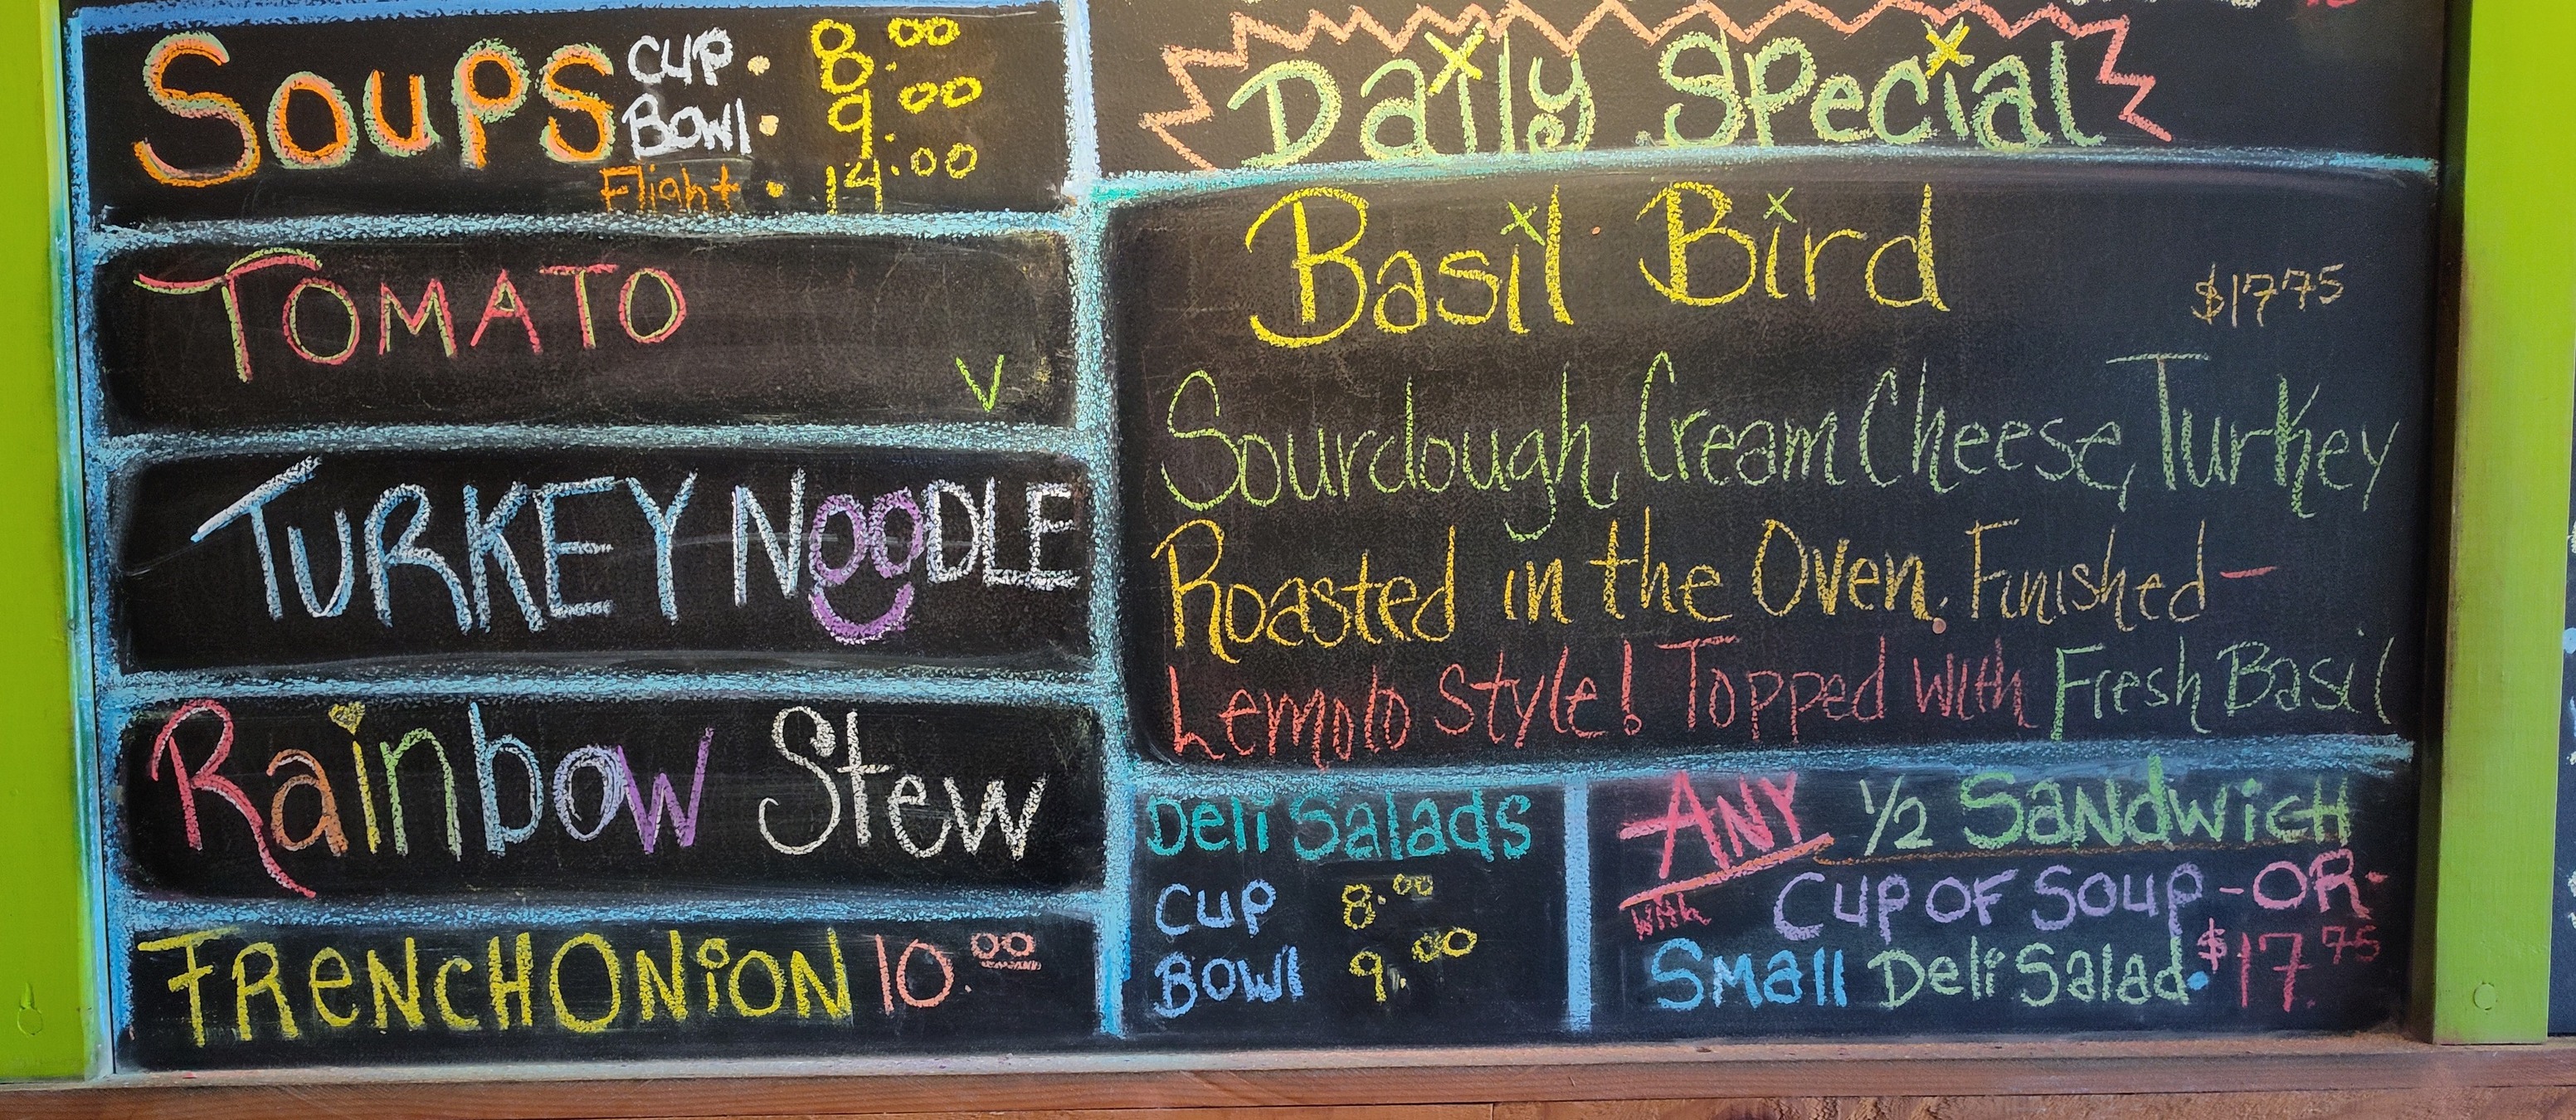 Soups
Cup • 8.00
Bowl • 9.00
Flight • 14.00
TOMATO
V
TURKEY NOODLE
Rainbow Stew
FRENCH ONION 10.00
Daily Special
Basil Bird
$17.75
Sourdough, Cream Cheese, Turkey
Roasted in the Oven. Finished -
Lemolo Style! Topped with Fresh Basil
Deli Salads
Cup 8.00
Bowl 9.00
ANY 1/2 SANDWICH
with CUP OF SOUP -OR-
SMALL Deli Salad • $17.75